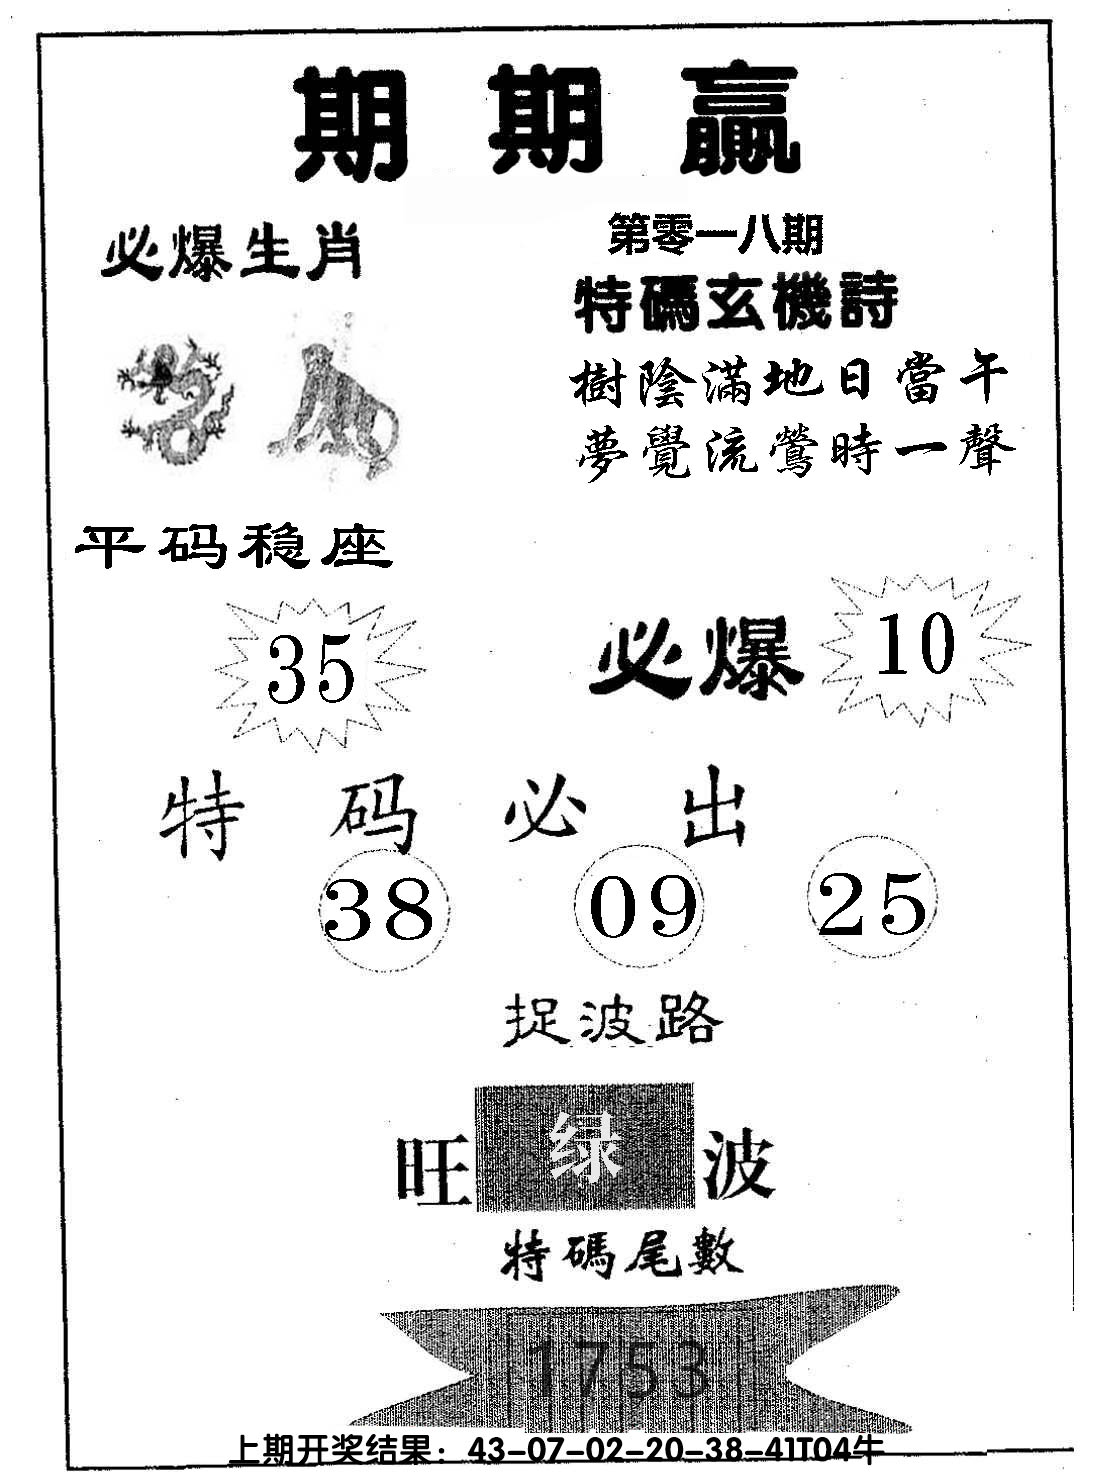 期期赢
必爆生肖
第零一八期
特碼玄機詩
樹陰滿地日當午
夢覺流鶯時一聲
平码稳座
35
必爆 10
特码必出
38 09 25
捉波路
旺 绿 波
特碼尾數
1753
上期开奖结果：43-07-02-20-38-41T04牛